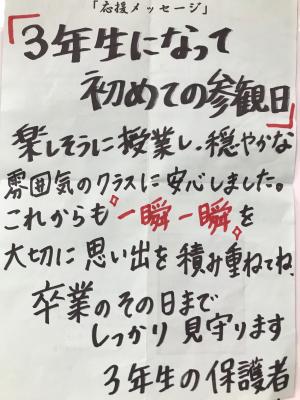 「応援メッセージ」
「3年生になって
初めての参観日」
楽しそうに授業し、穏やかな
雰囲気のクラスに安心しました。
これからも“一瞬一瞬”を
大切に思い出を積み重ねてね、
卒業のその日まで
しっかり見守ります
3年生の保護者